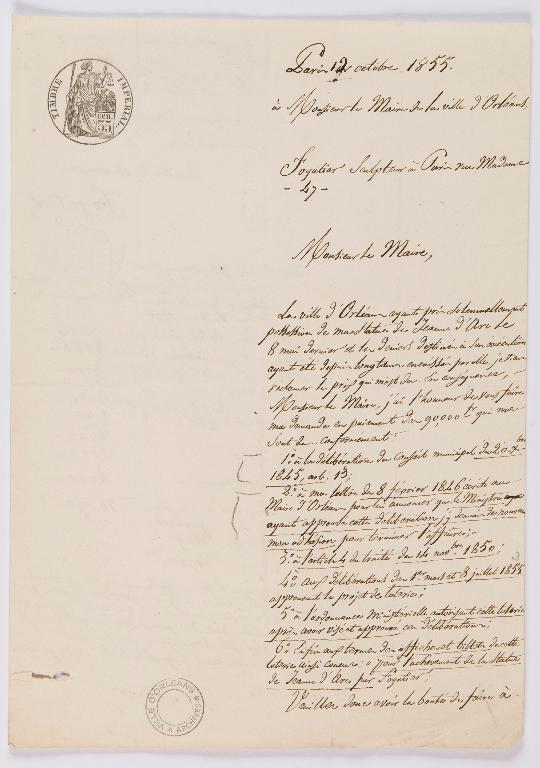 TIMBRE IMPERIAL.
35 cen.
Paris 12 octobre 1855.
à Monsieur le Maire de la ville d'Orléans.
Foyatier Sculpteur à Paris rue Madame
- 47 -
Monsieur le Maire,
La ville d'Orléans ayant pris solennellement
possession de ma Statue de Jeanne d'Arc le
8 mai dernier et les deniers destinés à son exécution
ayant été depuis longtems encaissés par elle, je dois
réclamer le prix qui m'est dû. En conséquence,
Monsieur le Maire, j'ai l'honneur de vous faire
ma demande en paiement des 90,000 fr qui me
sont dus conformément
1° à la délibération du Conseil municipal du 20
1845, art. 13;
2° à ma lettre du 8 février 1846 écrite au
Maire d'Orléans pour lui annoncer que le Ministre
ayant approuvé cette délibération, je donnais de nouveau
mon adhésion pour terminer l'affaire;
3° à l'article 4 du traité du 14 novbre 1850;
4° aux délibérations des 1er mars et 8 juillet 1855
approuvant le projet de loterie;
5° à l'ordonnance Ministérielle autorisant cette loterie
après avoir visé et approuvé ces délibérations;
6° Enfin aux termes des affiches et billets de cette
loterie ainsi conçus: " pour l'achèvement de la Statue
de Jeanne d'Arc par Foyatier.
Veuillez donc avoir la bonté de faire à
VILLE D'ORLEANS
ARCHIVES